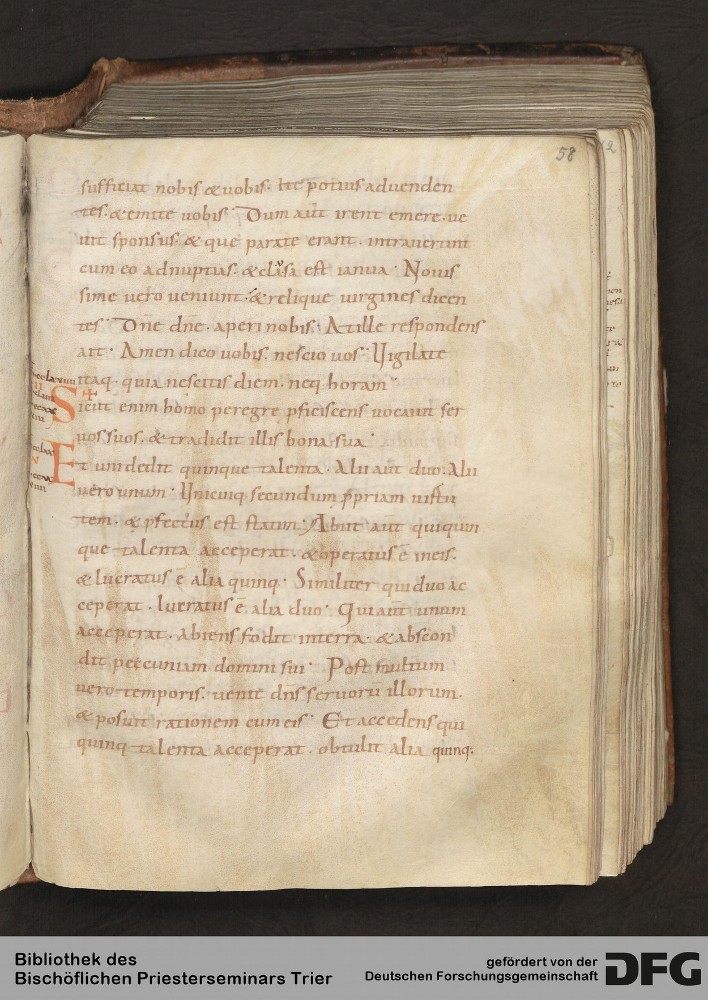 58
sufficiat nobis & uobis. Ite potius aduenden
tes. & emite uobis. Dum aut̄ irent emere. ue
nit sponsus. & que parate erant. intrauerunt
cum eo adnuptias. & clausa est ianua. Nouis
sime uero ueniunt. & relique uirgines dicen
tes. Dn̄e dn̄e. aperi nobis. Atille respondens
ait. Amen dico uobis. nescio uos. Vigilate
itaq. quia nescitis diem. neq horam
Sicut enim homo peregre pficiscens uocauit ser
uos suos. & tradidit illis bona sua.
Et uni dedit quinque talenta. Alii aut̄ duo. Alii
uero unum. Vnicuiq secundum ppriam uirtu
tem. & pfectus est statim. Abiit aut̄ qui quin
que talenta acceperat. & operatus ē ineis.
& lucratus ē alia quinq. Similiter qui duo ac
ceperat. lucratus ē alia duo. Qui aut̄ unum
acceperat. abiens fodit interra. & abscon
dit peccuniam domini sui. Post multum
uero temporis. uenit dn̄s seruorū illorum.
& posuit rationem cum eis. Et accedens qui
quinq talenta acceperat. obtulit alia quinq:
Bibliothek des
Bischöflichen Priesterseminars Trier
gefördert von der
Deutschen Forschungsgemeinschaft
DFG